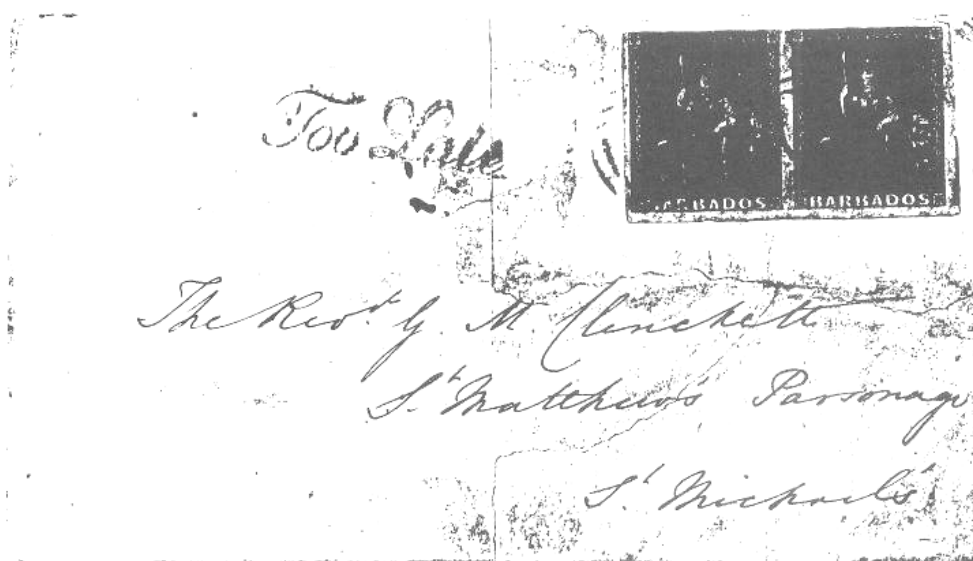 Too Late
BARBADOS BARBADOS
The Revd. G. M. Clinckett
St Matthew's Parsonage
St Michael's